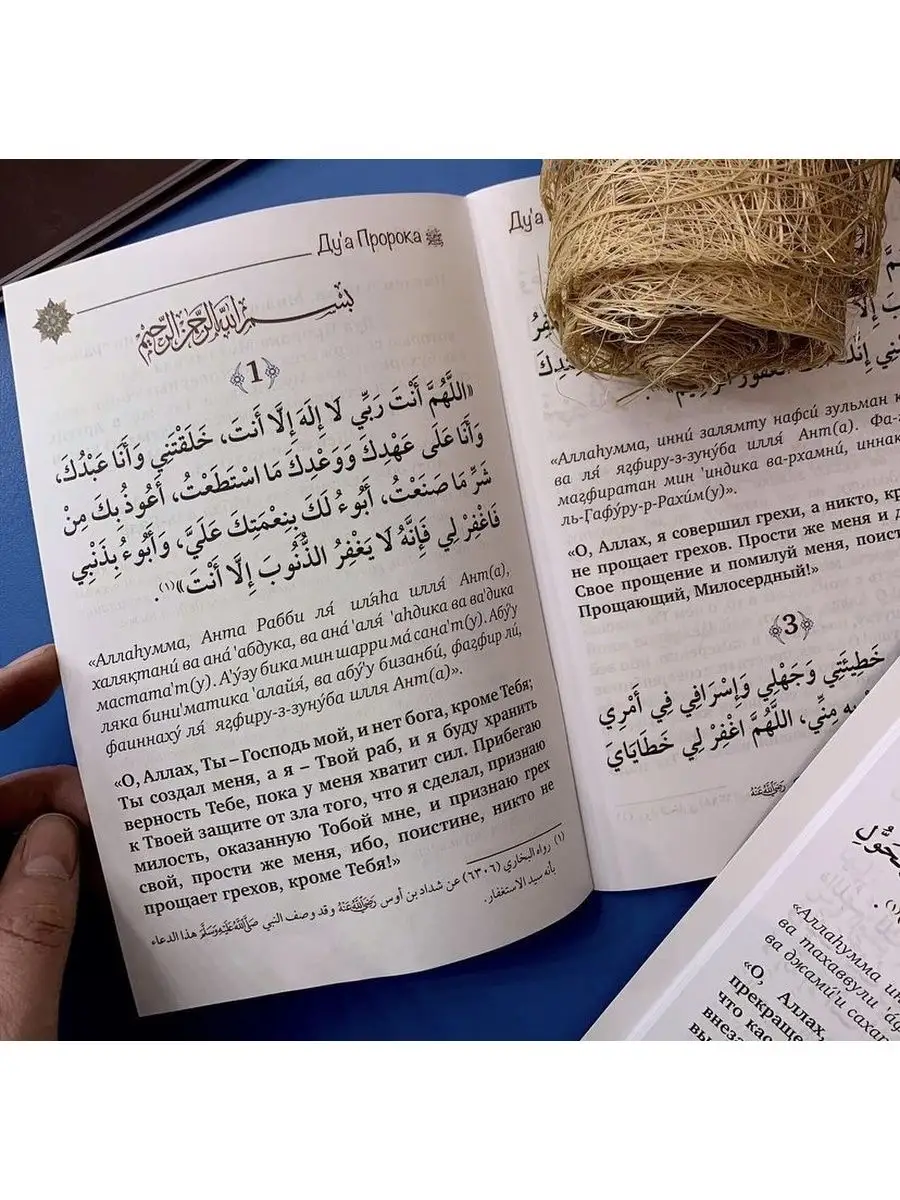 Ду'а Пророка ﷺ
بِسْمِ اللَّهِ الرَّحْمَنِ الرَّحِيمِ
1
«اللَّهُمَّ أَنْتَ رَبِّي لَا إِلَهَ إِلَّا أَنتَ، خَلَقْتَنِي وَأَنَا عَبْدُكَ،
وَأَنَا عَلَى عَهْدِكَ وَوَعْدِكَ مَا اسْتَطَعْتُ، أَعُوذُ بِكَ مِنْ
شَرِّ مَا صَنَعْتُ، أَبُوءُ لَكَ بِنِعْمَتِكَ عَلَيَّ، وَأَبُوءُ بِذَنْبِي
فَاغْفِرْ لِي فَإِنَّهُ لَا يَغْفِرُ الذُّنُوبَ إِلَّا أَنْتَ»(١).
«Аллаhумма, Анта Рабби ля́ иля́hа илля́ Ант(а),
халяқтани́ ва ана́ 'абдука, ва ана́ 'аля́ 'аhдика ва ва'дика
мастата'т(у). А'у́зу бика мин шарри ма́ сана'т(у). Абу́у
ляка бини'матика 'алайя́, ва абу́у бизанби́, фағфир ли́,
фаиннаху́ ля́ яғфиру-з-зуну́ба илля Ант(а)».
«О, Аллах, Ты – Господь мой, и нет бога, кроме Тебя;
Ты создал меня, а я – Твой раб, и я буду хранить
верность Тебе, пока у меня хватит сил. Прибегаю
к Твоей защите от зла того, что я сделал, признаю
милость, оказанную Тобой мне, и признаю грех
свой, прости же меня, ибо, поистине, никто не
прощает грехов, кроме Тебя!»
(١) رواه البخاري (٦٣٠٦) عن شداد بن أوس رَضِيَ اللَّهُ عَنْهُ وقد وصف النبي صَلَّى اللَّهُ عَلَيْهِ وَسَلَّمَ هذا الدعاء
بأنه سيد الاستغفار.
Ду'а
«Аллаhумма, инни́ залямту нафси́ зульман к
ва ля́ яғфиру-з-зуну́ба илля́ Ант(а). Фа-
мағфиратан мин 'индика ва-рхамни́, иннак
ль-Гафу́ру-р-Рахи́м(у)».
«О, Аллах, я совершил грехи, а никто, кр
не прощает грехов. Прости же меня и д
Свое прощение и помилуй меня, поист
Прощающий, Милосердный!»
3
خَطِيئَتِي وَجَهْلِي وَإِسْرَافِي فِي أَمْرِي
مِنِّي، اللَّهُمَّ اغْفِرْ لِي خَطَايَايَ
رَضِيَ اللَّهُ عَنْهُ
«Аллаhумма ин
ва тахаввули 'а́ф
ва джами́'и сахаṭ
«О, Аллах,
прекраще
что кас
внеза
вы